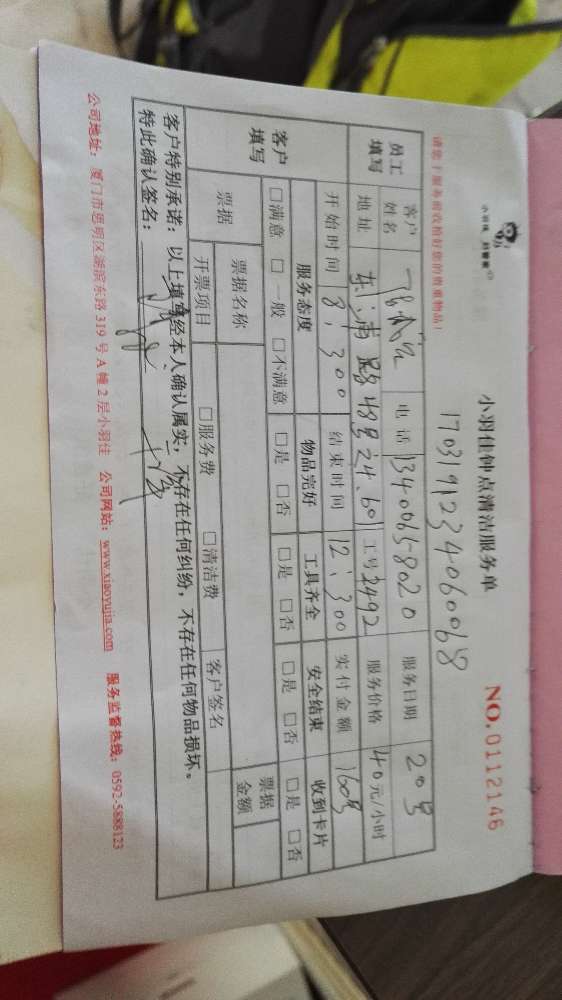 小羽佳 好管家
小羽佳钟点清洁服务单
NO.0112146
请您于服务前收拾好您的贵重物品!
17031912340600068
员工填写
客户姓名 电话 13400658020 服务日期 20号
地址 48号24.601 工号 2492 服务价格 40元/小时
开始时间 8:300 结束时间 12:300 实付金额 160号
客户填写
服务态度 物品完好 工具齐全 安全结束 收到卡片
□满意 □一般 □不满意 □是 □否 □是 □否 □是 □否 □是 □否
票据 票据名称 票据金额
开票项目 □服务费 □清洁费 客户签名
客户特别承诺:以上填写经本人确认属实,不存在任何纠纷,不存在任何物品损坏。
特此确认签名:
公司地址:厦门市思明区湖滨东路319号A幢2层小羽佳 公司网站:www.xiaoyujia.com 服务监督热线:0592-5888123